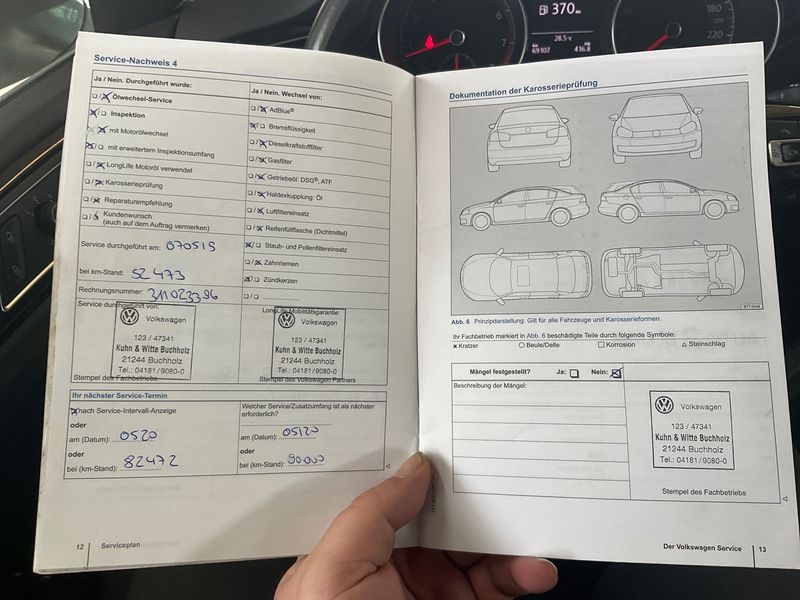 370 km
28.5°C
69107
416.8
7
180
220
Service-Nachweis 4
Ja / Nein. Durchgeführt wurde:
Ölwechsel-Service
Inspektion
mit Motorölwechsel
mit erweitertem Inspektionsumfang
LongLife Motoröl verwendet
Karosserieprüfung
Reparaturempfehlung
Kundenwunsch
(auch auf dem Auftrag vermerken)
Service durchgeführt am: 070519
bei km-Stand: 52473
Rechnungsnummer: 311023396
Service durchgeführt von:
Volkswagen
123 / 47341
Kuhn & Witte Buchholz
21244 Buchholz
Tel.: 04181/9080-0
Stempel des Fachbetriebs
Ja / Nein. Wechsel von:
AdBlue®
Bremsflüssigkeit
Dieselkraftstofffilter
Gasfilter
Getriebeöl: DSG®, ATF
Haldexkupplung: Öl
Luftfiltereinsatz
Reifenfüllflasche (Dichtmittel)
Staub- und Pollenfiltereinsatz
Zahnriemen
Zündkerzen
LongLife Mobilitätsgarantie:
Volkswagen
123 / 47341
Kuhn & Witte Buchholz
21244 Buchholz
Tel.: 04181/9080-0
Stempel des Volkswagen Partners
Ihr nächster Service-Termin
nach Service-Intervall-Anzeige
oder
am (Datum): 0520
oder
bei (km-Stand): 82472
Welcher Service/Zusatzumfang ist als nächster
erforderlich?
am (Datum): 05120
oder
bei (km-Stand): 90000
12 Serviceplan
Dokumentation der Karosserieprüfung
Abb. 6 Prinzipdarstellung. Gilt für alle Fahrzeuge und Karosserieformen.
Ihr Fachbetrieb markiert in Abb. 6 beschädigte Teile durch folgende Symbole:
x Kratzer ○ Beule/Delle □ Korrosion △ Steinschlag
Mängel festgestellt? Ja: Nein:
Beschreibung der Mängel:
Volkswagen
123 / 47341
Kuhn & Witte Buchholz
21244 Buchholz
Tel.: 04181/9080-0
Stempel des Fachbetriebs
Der Volkswagen Service 13